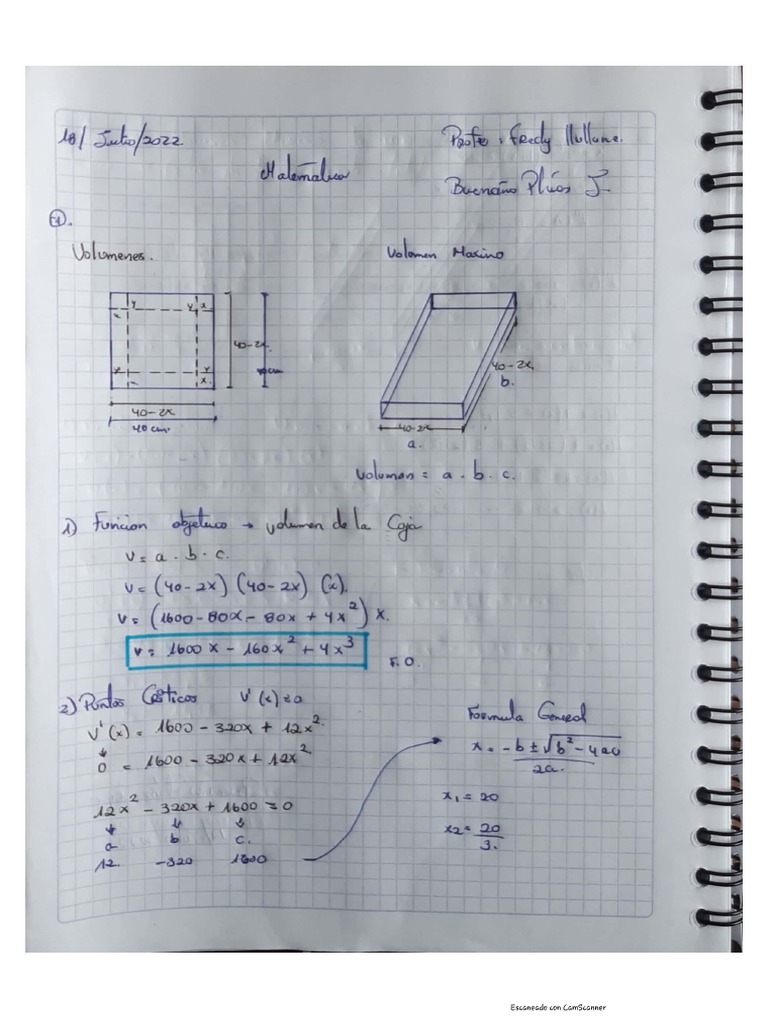 18/Julio/2022
Profe: Fredy Llullune.
Matemática
Buenaño Plúas J.
1.
Volumenes.
Volumen Maximo
x y y x
x y
x
40-2x.
40 cm
40-2x
40 cm.
40-2x
b.
40-2x
a.
Volumen = a . b . c.
1) Funcion objetivo → volumen de la Caja
V = a . b . c.
V = (40-2x) (40-2x) (x).
V = (1600-80x-80x+4x²) x.
V = 1600x - 160x² + 4x³
F.O.
2) Puntos Criticos V'(x)=0
V'(x) = 1600 - 320x + 12x².
0 = 1600 - 320x + 12x².
12x² - 320x + 1600 = 0
a b c.
12. -320 1600
Formula General
x = -b ± √b² - 4ac
2a.
x₁ = 20
x₂ = 20
3.
Escaneado con CamScanner